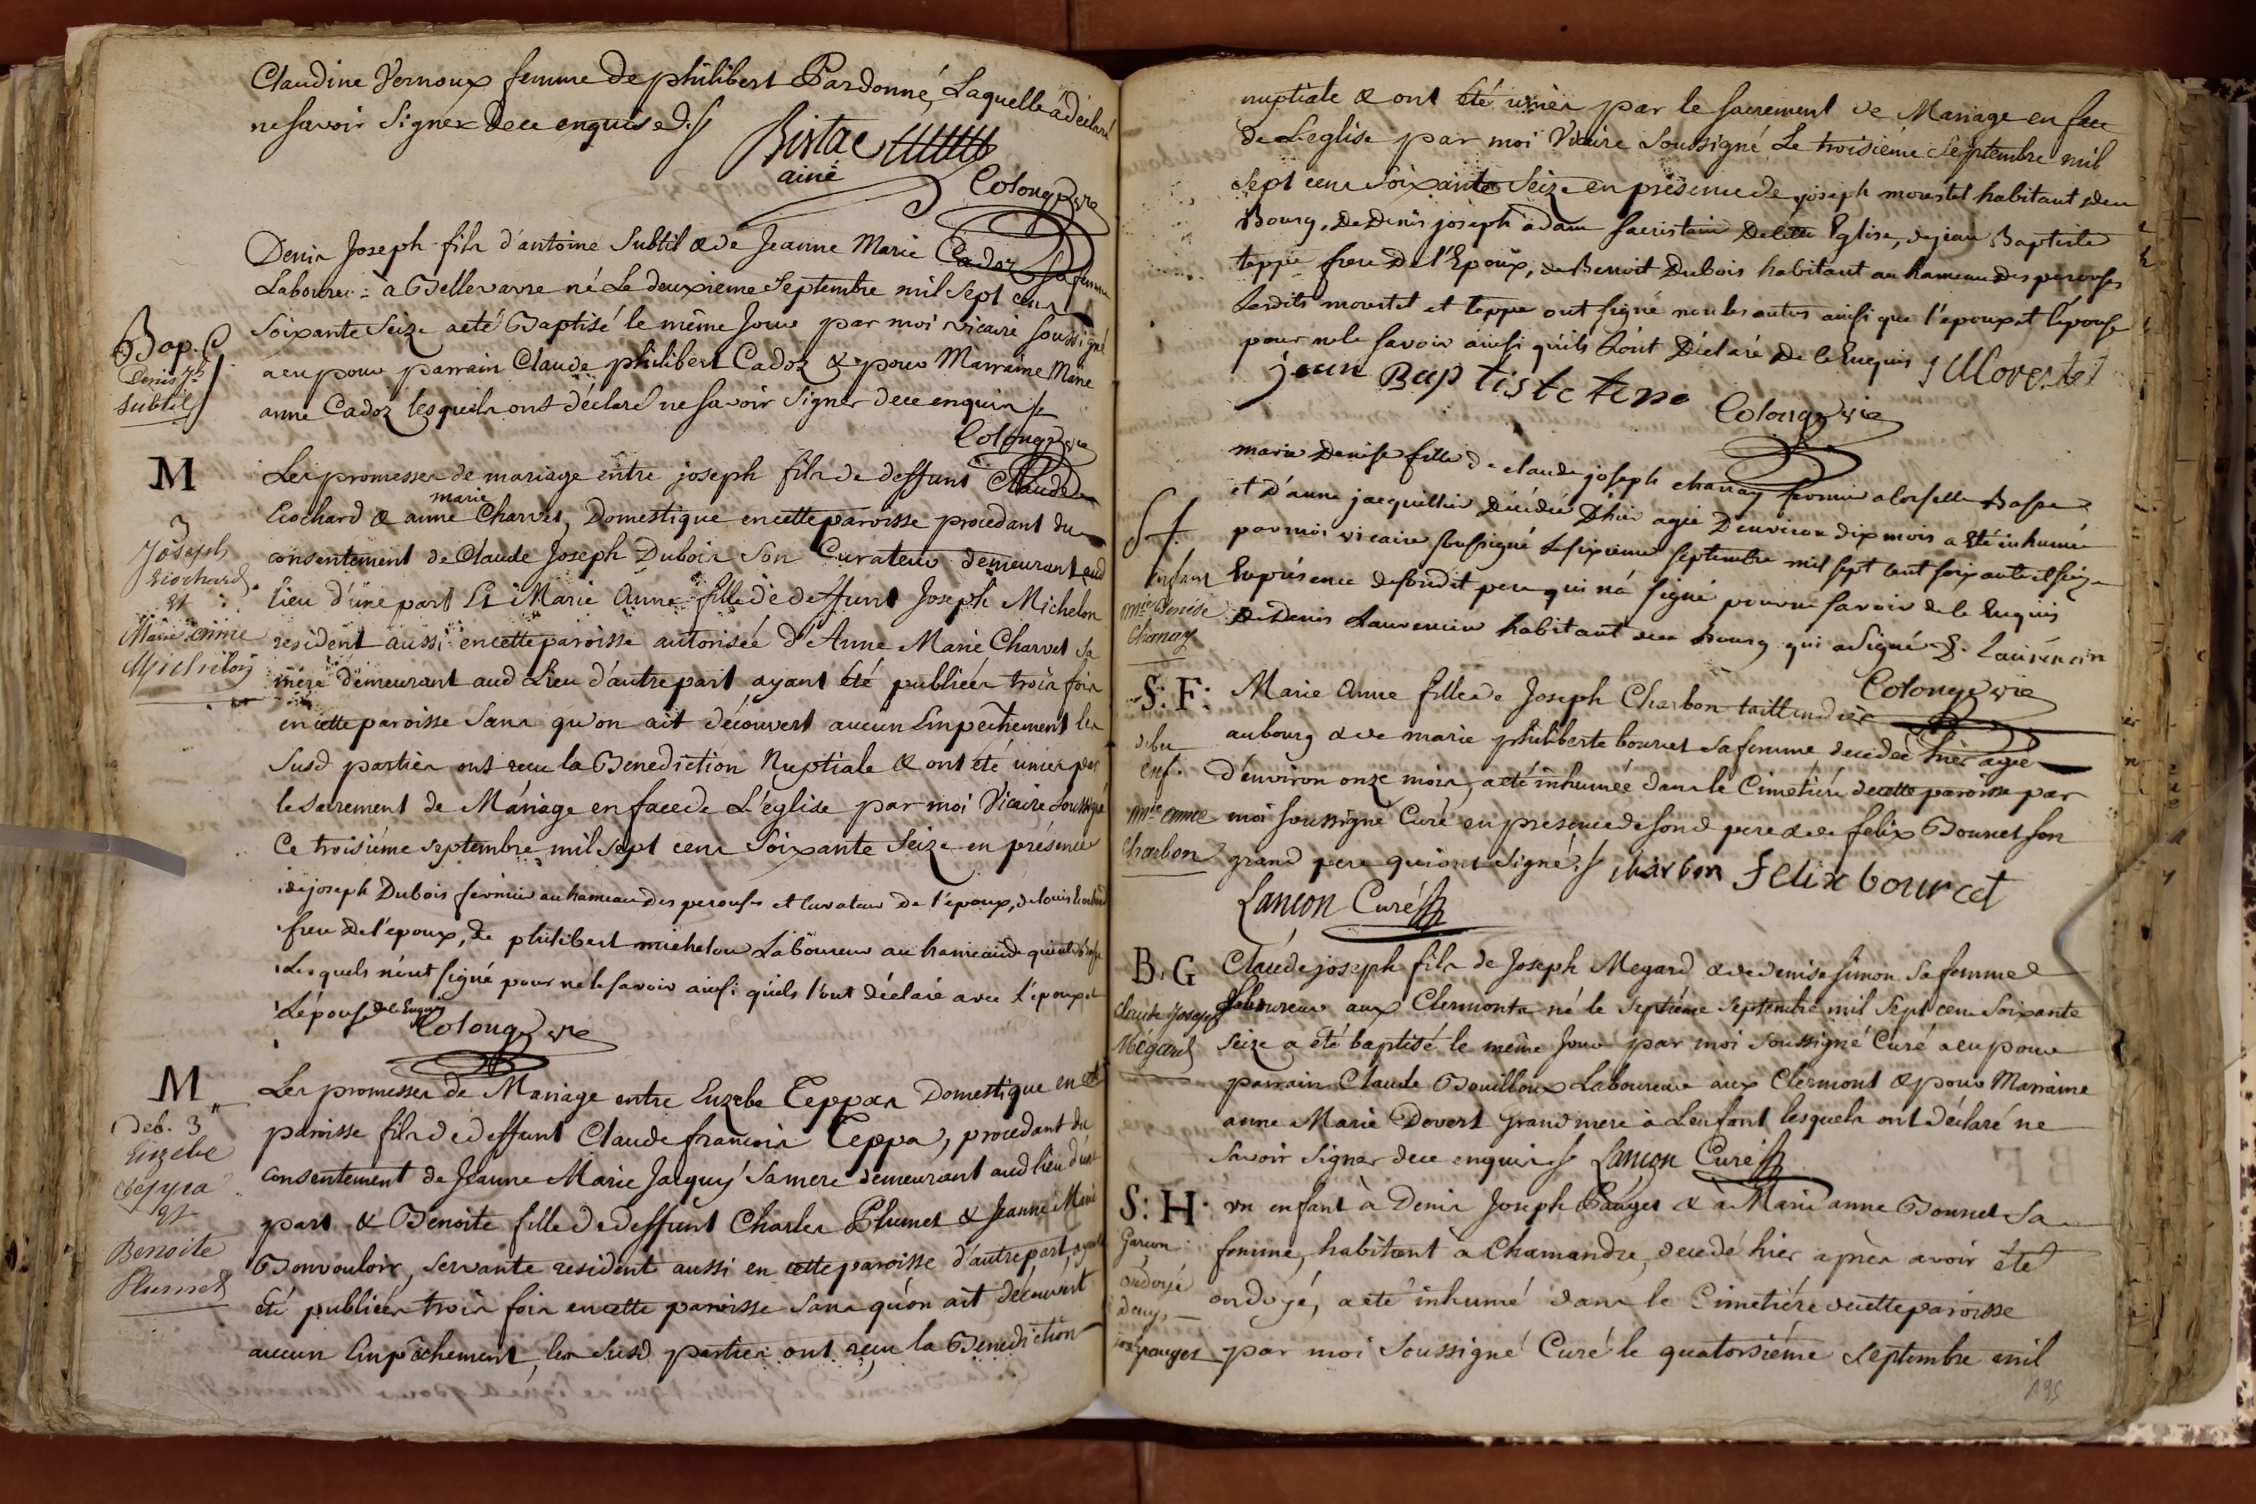 Claudine Vernoux femme de philibert Pardonné, Laquelle a déclaré
ne savoir Signer de ce enquise
Bistac
ainé
Colonge vre
Denis Joseph fils d'antoine Subtil & de Jeanne Marie Cadoz sa femme
Laboureur a Bellevavre né Le deuxieme Septembre mil Sept cens
Bap.
Denis Jh
Subtil
Soixante Seize a eté Baptisé le même Jour par moi vicaire soussigné
a eu pour parrain Claude philibert Cadoz & pour Marraine Marie
anne Cadoz lesquels ont déclaré ne savoir Signer de ce enquis
Colonge vre
M
3
Joseph
Et
Marie anne
Michelon
Les promesses de mariage entre joseph fils de deffunt Claude
marie
& anne Charvet, Domestique en cette paroisse procedant du
consentement de Claude Joseph Dubois Son Curateur demeurant aud
lieu d'une part Et Marie Anne fille de deffunt Joseph Michelon
resident aussi en cette paroisse autorisée d'Anne Marie Charvet Sa
mere demeurant aud Lieu d'autre part ayant été publiées trois fois
en cette paroisse Sans qu'on ait découvert aucun Empêchement les
Susd parties ont recu la Benediction Nuptiale & ont été unies par
le Sacrement de Mariage en face de L'église par moi Vicaire Soussigné
Ce troisiéme Septembre mil Sept cens Soixante Seize en présence
de joseph Dubois fermier au hameau des perouses et Curateur de l'époux, de louis
frere de l'epoux, de philibert michelon Laboureur au hameau de
Lesquels n'ont signé pour ne le savoir ainsi qu'ils l'ont déclaré avec l'epoux et
L'épouse de le Enquis
Colonge vre
M
deb. 3
Euzebe
Teppa
Et
Benoite
Plumet
Les promesses de Mariage entre Euzebe Teppa Domestique en cette
paroisse fils de deffunt Claude francois Teppa, procedant du
consentement de Jeanne Marie Jacquy Sa mere demeurant aud lieu d'une
part & Benoite fille de deffunt Charles Plumet & Jeanne Marie
Bonvouloir, Servante resident aussi en cette paroisse d'autre part, ayant
été publiées trois fois en cette paroisse Sans qu'on ait découvert
aucun Empêchement, les Susd parties ont reçu la Benediction
nuptiale & ont été unies par le Sacrement de Mariage en face
de L'eglise par moi Vicaire Soussigné Le troisiéme Septembre mil
Sept cens Soixante Seize en présence de joseph morestel habitant de ce
Bourg, de Denis joseph adam Sacristain de cette Eglise, de jean Baptiste
teppe frere de l'Epoux, de Benoit Dubois habitant au hameau des perouses
Lesdits morestel et teppe ont signé non les autres ainsi que l'epoux et l'épouse
pour ne le savoir ainsi qu'ils L'ont Déclaré de le Enquis J Morestel
jean Baptiste tepe
Colonge vre
S f.
Enfant
mie Denise
Chanay
marie Denise fille de claude joseph chanay fermier Basse
et D'anne jacquillier Décédée D'hier agée D'environ dix mois a Eté inhumée
par moi vicaire soussigné Le sixieme Septembre mil sept cent soixante et seize
En présence de sondit pere qui n'a signé pour ne savoir de le Enquis
de Denis Laurencin habitant de ce Bourg qui a Signé D. Laurencin
Colonge vre
S: F:
enf.
mie anne
Charbon
Marie Anne fille de Joseph Charbon taillandier
au bourg & de marie philiberte bourcet Sa femme decedée hier agée
d'environ onze mois, a eté inhumée dans le Cimetiére de cette paroisse par
moi soussigné Curé en presence de son d pere & de felix Bourcet son
grand pere qui ont Signé. charbon felix bourcet
Lançon Curé
B. G
Claude Joseph
Mégard
Claude joseph fils de Joseph Megard & de denise simon Sa femme
Laboureur aux Clermonts né le Septiéme Septembre mil Sept cens Soixante
Seize a été baptisé le même Jour par moi Soussigné Curé a eu pour
parrain Claude Bouilloux Laboureur aux Clermont & pour Marraine
anne Marie Dovert grand mere à L'enfant lesquels ont déclaré ne
Savoir Signer de ce enquis Lançon Curé
S: H:
Garcon
ondoyé
denis
josh pauget
un enfant à Denis Joseph Pauget & à Marie anne Bonnet Sa
femme, habitant à Chamandre, decedé hier après avoir été
ondoyé, a eté inhumé dans le Cimetiére de cette paroisse
par moi Soussigné Curé le quatorsiéme Septembre mil
195